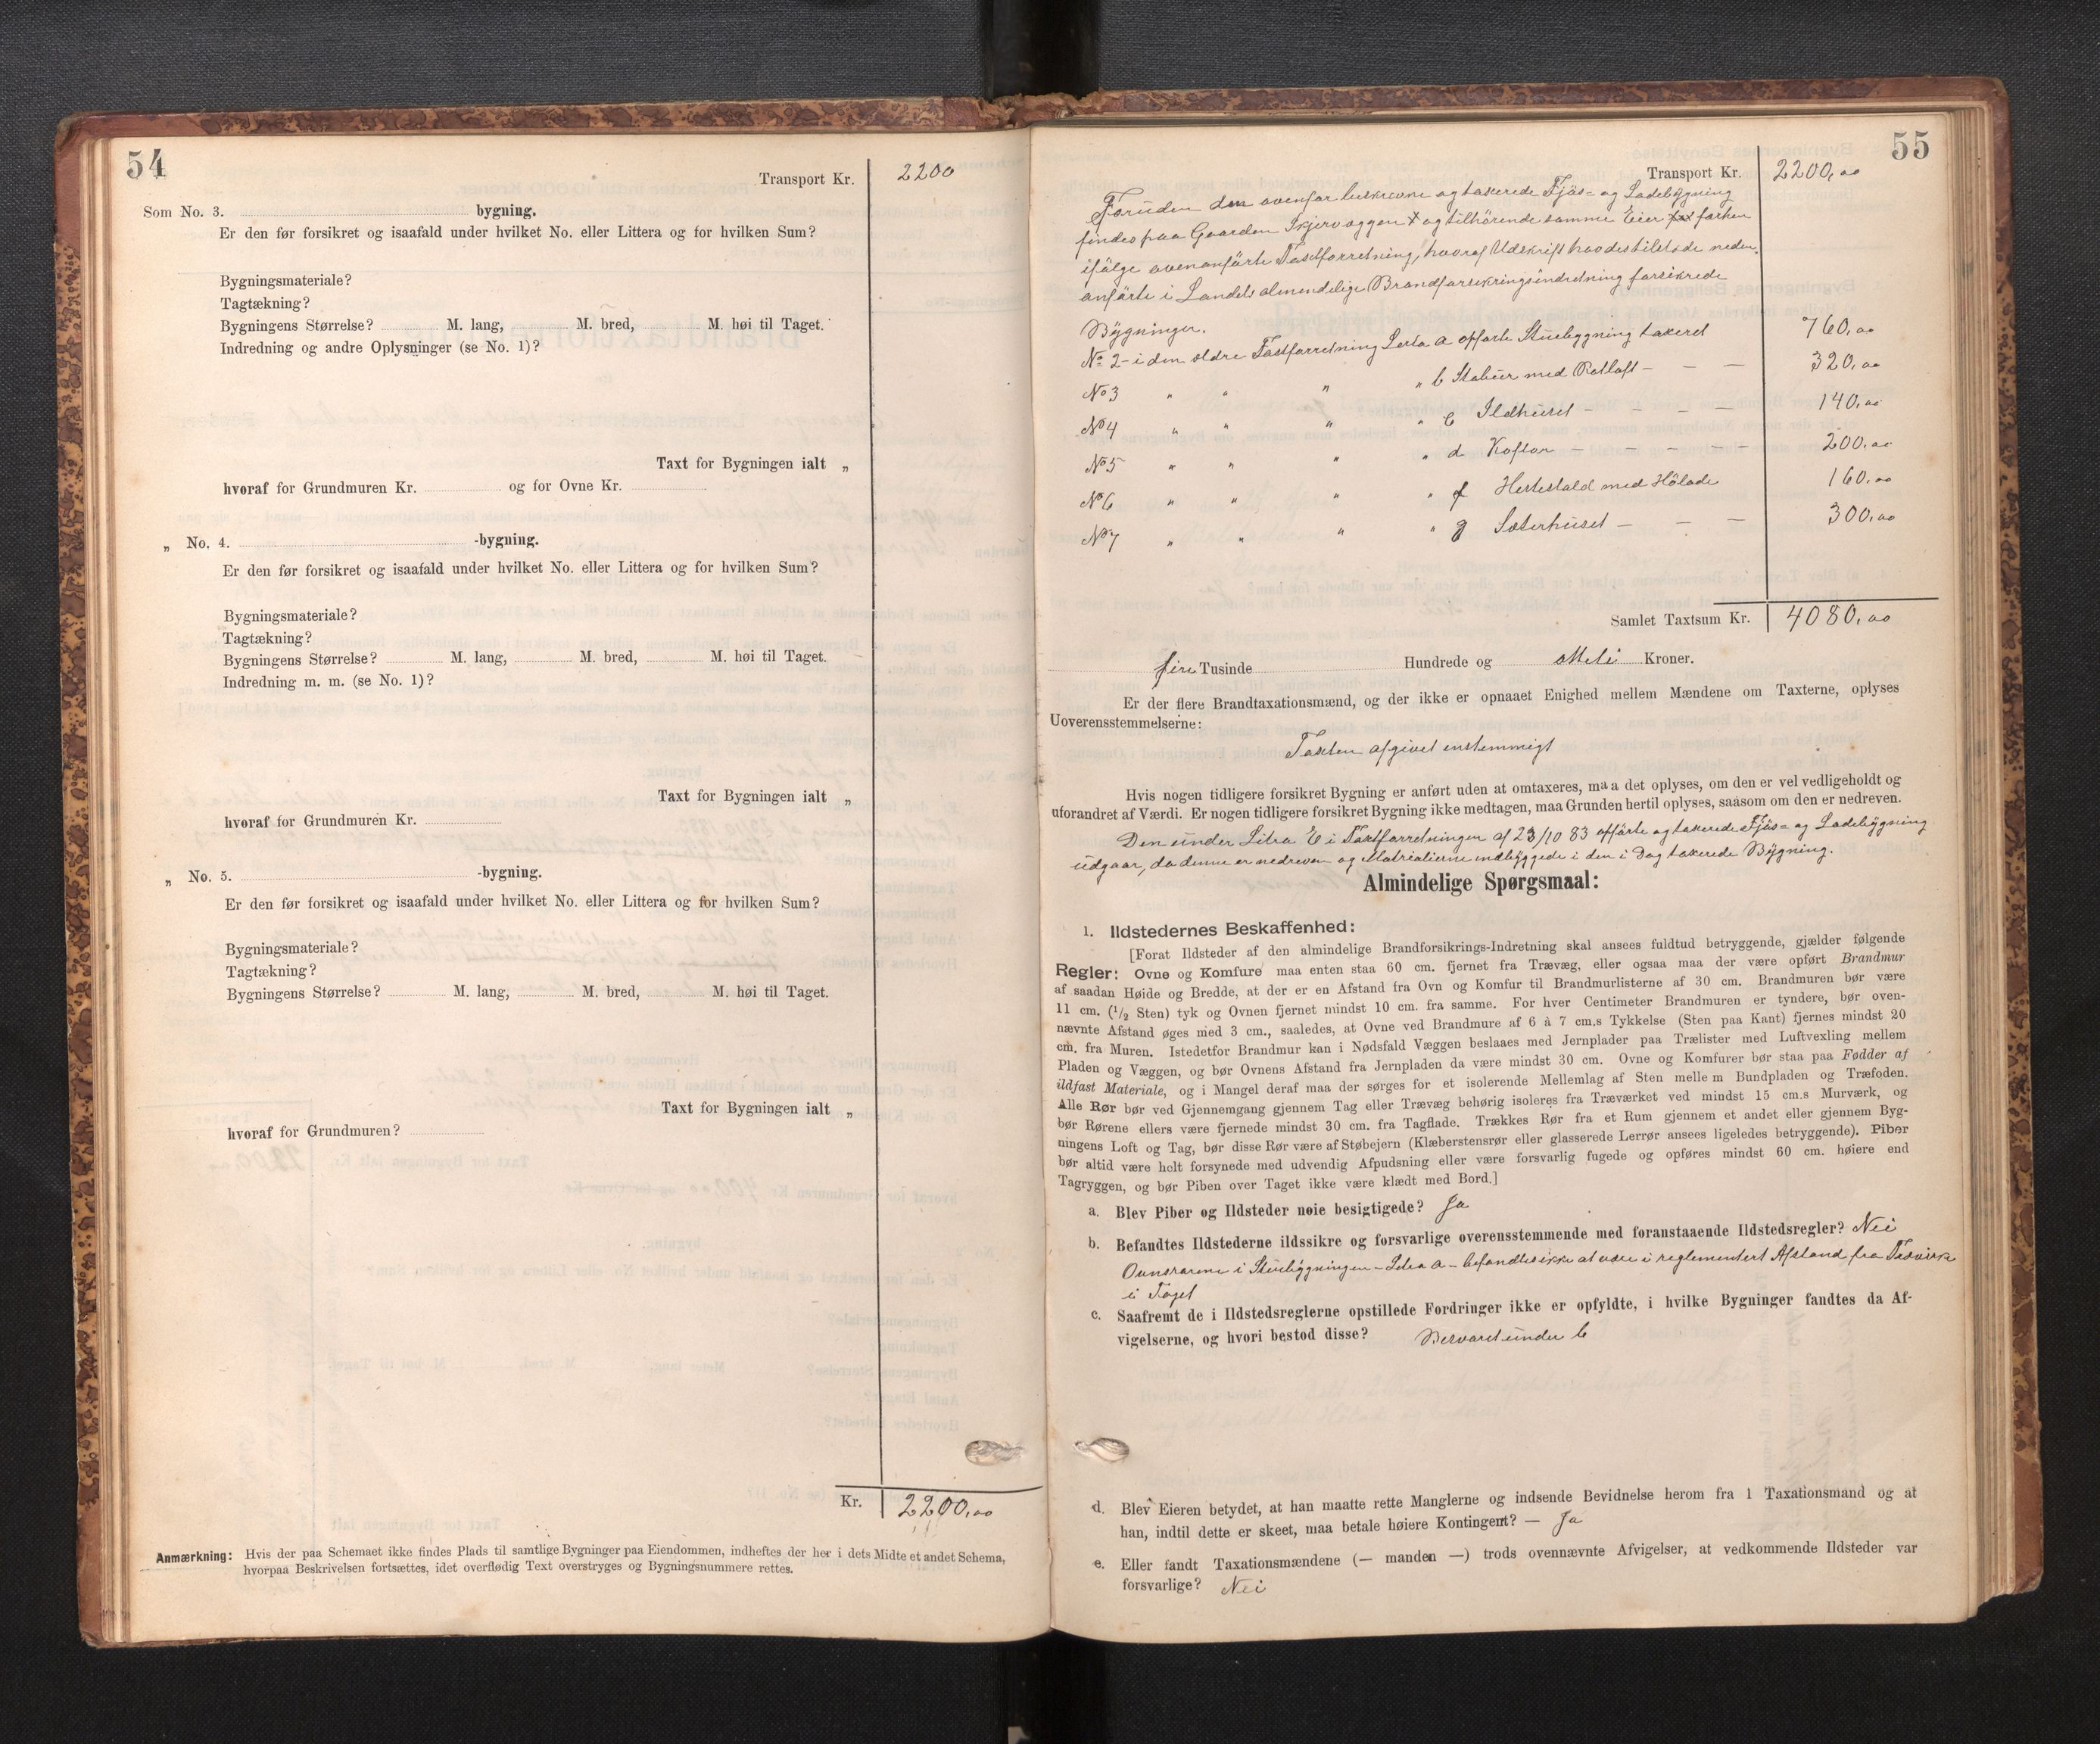 54
Transport Kr. 2200
Som No. 3. bygning.
Er den før forsikret og isaafald under hvilket No. eller Littera og for hvilken Sum?
Bygningsmateriale?
Tagtækning?
Bygningens Størrelse? M. lang, M. bred, M. høi til Taget.
Indredning og andre Oplysninger (se No. 1)?
Taxt for Bygningen ialt „
hvoraf for Grundmuren Kr. og for Ovne Kr.
„ No. 4. -bygning.
Er den før forsikret og isaafald under hvilket No. eller Littera og for hvilken Sum?
Bygningsmateriale?
Tagtækning?
Bygningens Størrelse? M. lang, M. bred, M. høi til Taget.
Indredning m. m. (se No. 1)?
Taxt for Bygningen ialt „
hvoraf for Grundmuren Kr.
„ No. 5. -bygning.
Er den før forsikret og isaafald under hvilket No. eller Littera og for hvilken Sum?
Bygningsmateriale?
Tagtækning?
Bygningens Størrelse? M. lang, M. bred, M. høi til Taget.
Taxt for Bygningen ialt „
hvoraf for Grundmuren?
Kr. 2200,00
Anmærkning: Hvis der paa Schemaet ikke findes Plads til samtlige Bygninger paa Eiendommen, indheftes der her i dets Midte et andet Schema,
hvorpaa Beskrivelsen fortsættes, idet overflødig Text overstryges og Bygningsnummere rettes.
55
Transport Kr. 2200,00
Foruden den ovenfor beskrevne og taxerede Fjös- og Ladebygning
findes paa Gaarden Skjervaggen og tilhörende samme Eier forhen
ifölge ovenanförte Taxtforretning, hvoraf Udskrift havdes tilstede neden-
anförte i Landets almendelige Brandforsikringsindretning forsikrede
Bygninger.
No 2 - i den ældre Taxtforretning Litra a opförte Stuebygning taxeret 760,00
No 3 " " " " b Stabur med Rotloft - - - 320,00
No 4 " " " " c Ildhuset - - - - 140,00
No 5 " " " " d Koftor - - - - 200,00
No 6 " " " " f Hestestald med Hölade 160,00
No 7 " " " " g Sæterhuset - - - 300,00
Samlet Taxtsum Kr. 4080,00
fire Tusinde Hundrede og otteti Kroner.
Er der flere Brandtaxationsmænd, og der ikke er opnaaet Enighed mellem Mændene om Taxterne, oplyses
Uoverensstemmelserne:
Taxten afgivet enstemmigt
Hvis nogen tidligere forsikret Bygning er anført uden at omtaxeres, maa det oplyses, om den er vel vedligeholdt og
uforandret af Værdi. Er nogen tidligere forsikret Bygning ikke medtagen, maa Grunden hertil oplyses, saasom om den er nedreven.
Den under Litra E i Taxtforretningen af 23/10 83 opförte og taxerede Fjös- og Ladebygning
udgaar, da denne er nedreven og Matrialierne indbyggede i den i Dag taxerede Bygning.
Almindelige Spørgsmaal:
1. Ildstedernes Beskaffenhed:
[Forat Ildsteder af den almindelige Brandforsikrings-Indretning skal ansees fuldtud betryggende, gjælder følgende
Regler: Ovne og Komfure maa enten staa 60 cm. fjernet fra Trævæg, eller ogsaa maa der være opført Brandmur
af saadan Høide og Bredde, at der er en Afstand fra Ovn og Komfur til Brandmurlisterne af 30 cm. Brandmuren bør være
11 cm. (1/2 Sten) tyk og Ovnen fjernet mindst 10 cm. fra samme. For hver Centimeter Brandmuren er tyndere, bør oven-
nævnte Afstand øges med 3 cm., saaledes, at Ovne ved Brandmure af 6 à 7 cm.s Tykkelse (Sten paa Kant) fjernes mindst 20
cm. fra Muren. Istedetfor Brandmur kan i Nødsfald Væggen beslaaes med Jernplader paa Trælister med Luftvexling mellem
Pladen og Væggen, og bør Ovnens Afstand fra Jernpladen da være mindst 30 cm. Ovne og Komfurer bør staa paa Fødder af
ildfast Materiale, og i Mangel deraf maa der sørges for et isolerende Mellemlag af Sten mellem Bundpladen og Træfoden.
Alle Rør bør ved Gjennemgang gjennem Tag eller Trævæg behørig isoleres fra Træværket ved mindst 15 cm.s Murværk, og
bør Rørene ellers være fjernede mindst 30 cm. fra Tagflade. Trækkes Rør fra et Rum gjennem et andet eller gjennem Byg-
ningens Loft og Tag, bør disse Rør være af Støbejern (Klæberstensrør eller glasserede Lerrør ansees ligeledes betryggende). Piber
bør altid være helt forsynede med udvendig Afpudsning eller være forsvarlig fugede og opføres mindst 60 cm. høiere end
Tagryggen, og bør Piben over Taget ikke være klædt med Bord.]
a. Blev Piber og Ildsteder nøie besigtigede? Ja
b. Befandtes Ildstederne ildssikre og forsvarlige overensstemmende med foranstaaende Ildstedsregler? Nei
Ovnsrörene i Stuebygningen - Litra a - befandtes ikke at være i reglementert Afstand fra Trævirke
i Taget
c. Saafremt de i Ildstedsreglerne opstillede Fordringer ikke er opfyldte, i hvilke Bygninger fandtes da Af-
vigelserne, og hvori bestod disse? Besvaret under b
d. Blev Eieren betydet, at han maatte rette Manglerne og indsende Bevidnelse herom fra 1 Taxationsmand og at
han, indtil dette er skeet, maa betale høiere Kontingent? — Ja
e. Eller fandt Taxationsmændene (— manden —) trods ovennævnte Afvigelser, at vedkommende Ildsteder var
forsvarlige? Nei